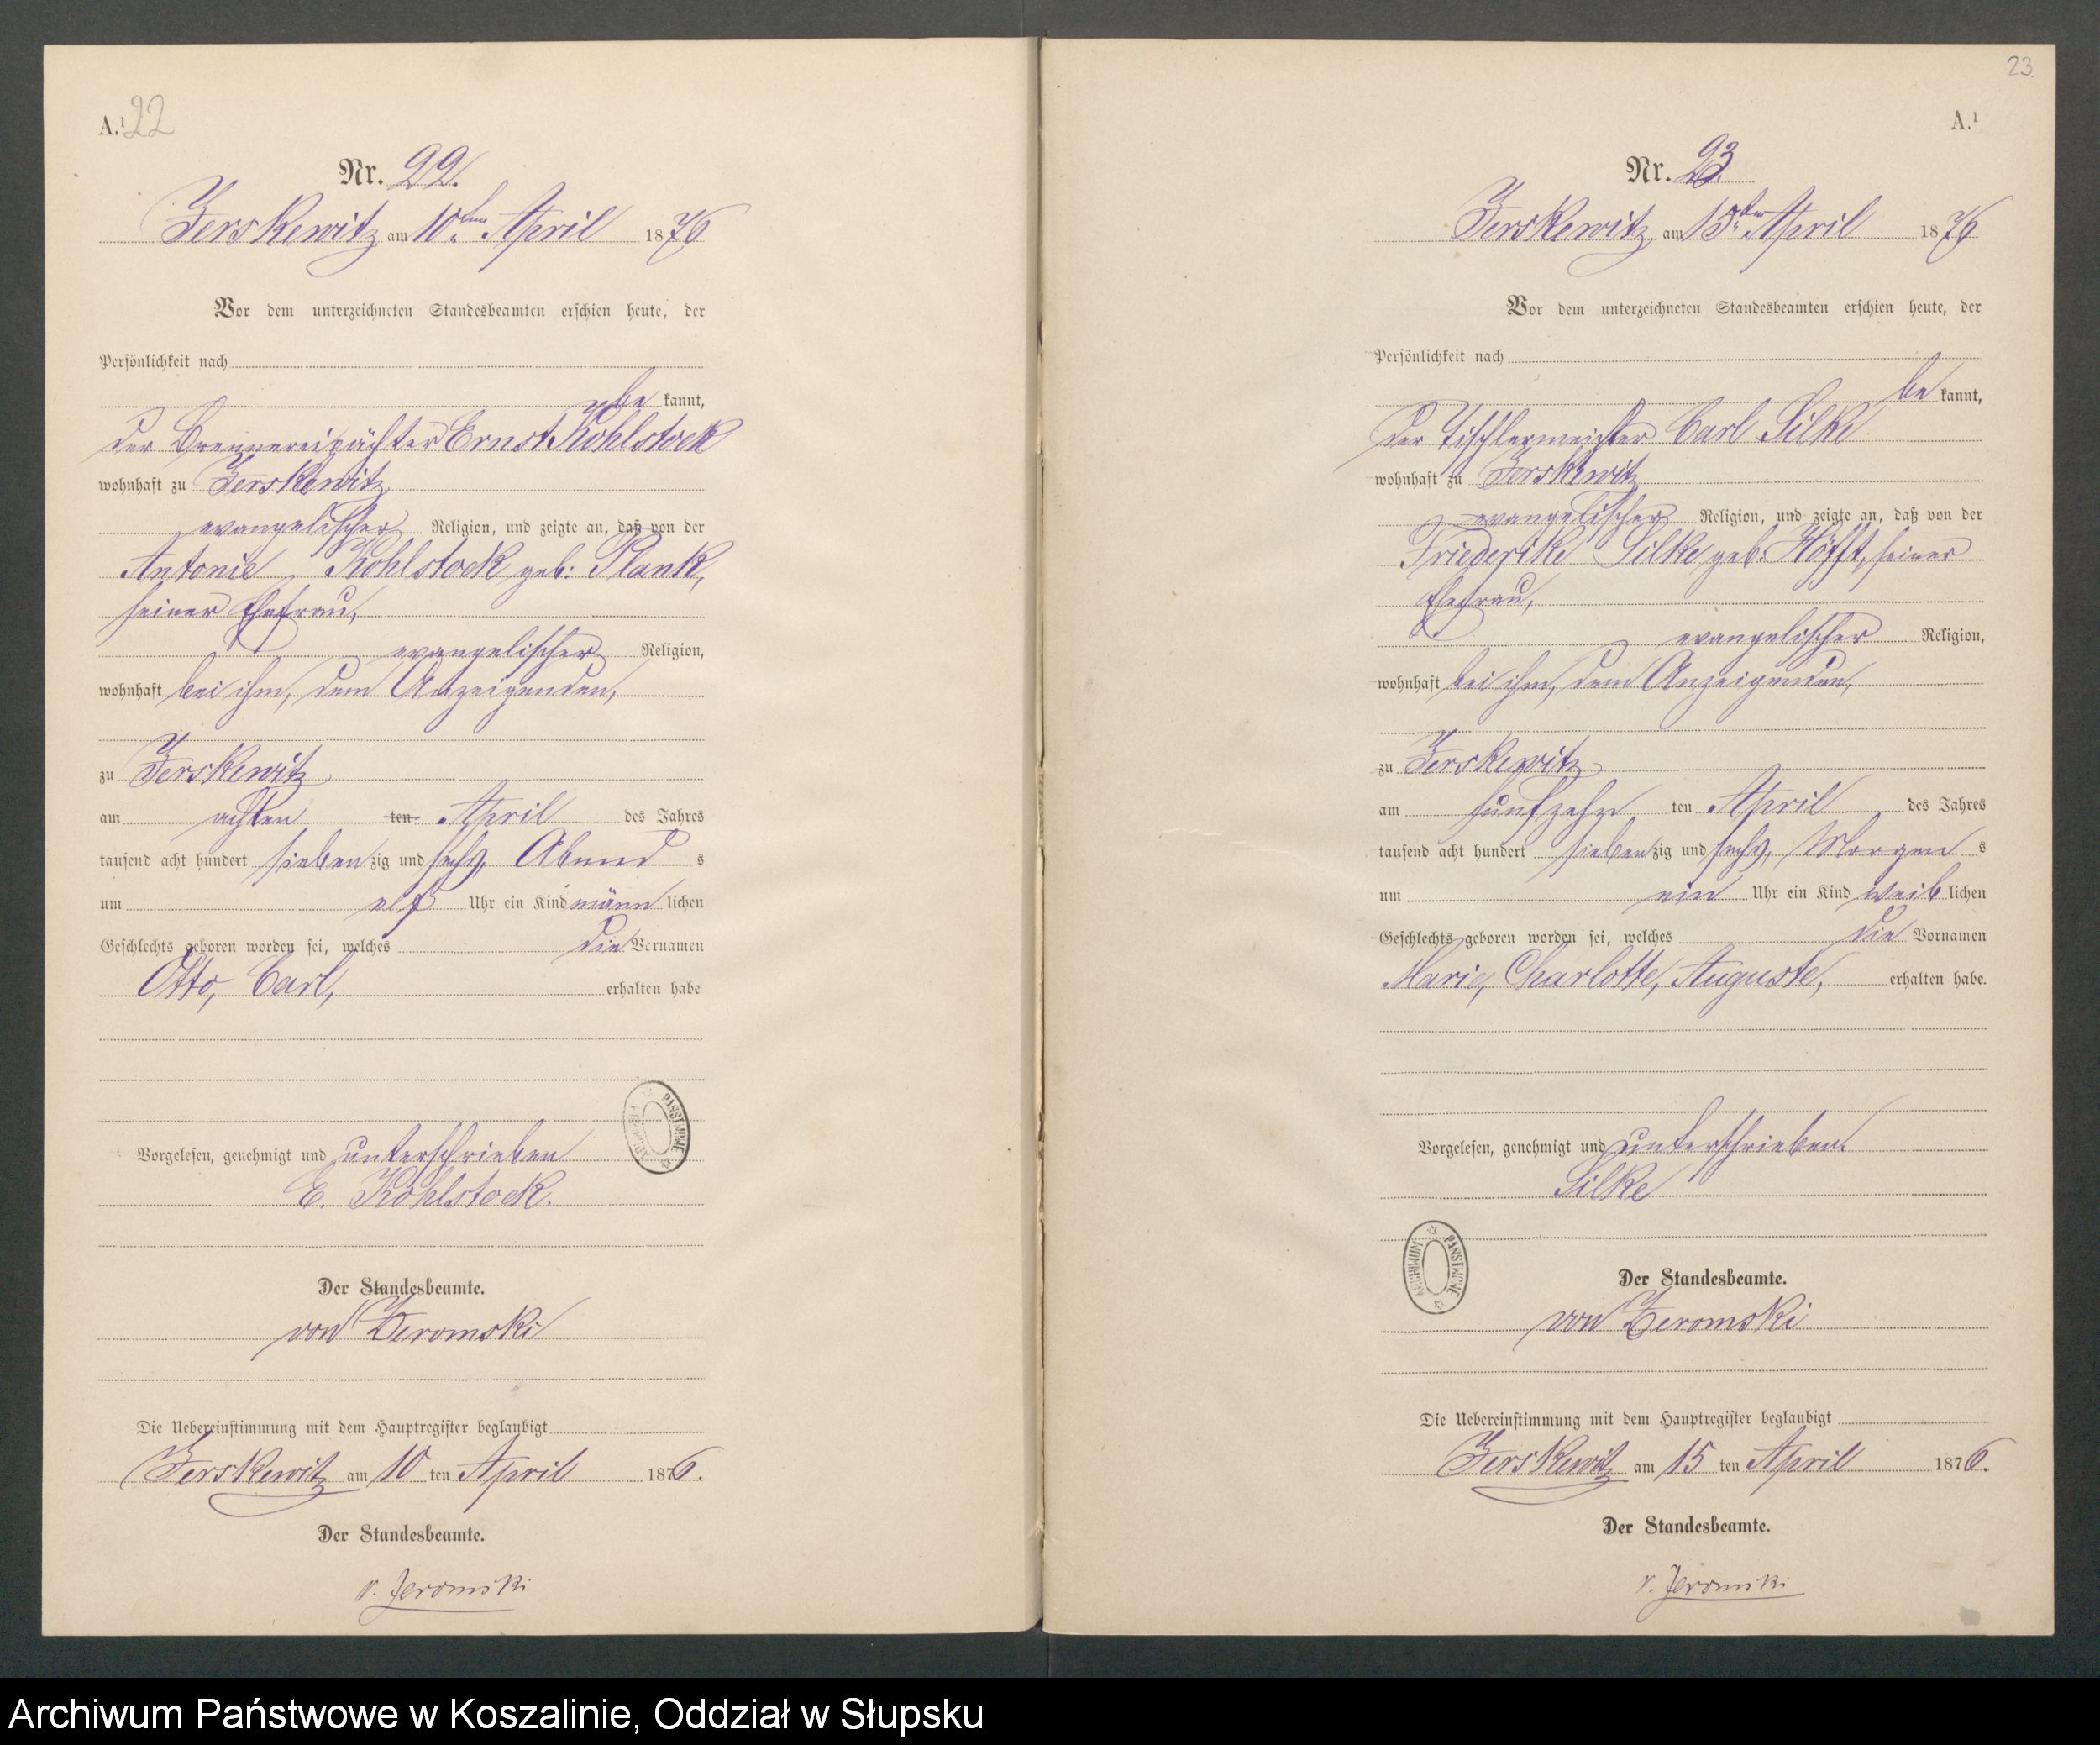 A.¹ 22
Nr. 22.
Jerskewitz am 10ten April 1876
Vor dem unterzeichneten Standesbeamten erschien heute, der
Persönlichkeit nach
be kannt,
der Brennereipächter Ernst Kohlstock
wohnhaft zu Jerskewitz
evangelischer Religion, und zeigte an, daß von der
Antonie Kohlstock geb: Plank,
seiner Ehefrau,
evangelischer Religion,
wohnhaft bei ihm, dem Anzeigenden,
zu Jerskewitz
am achten ten April des Jahres
tausend acht hundert sieben zig und sechs, Abend s
um elf Uhr ein Kind männ lichen
Geschlechts geboren worden sei, welches die Vornamen
Otto, Carl, erhalten habe
Vorgelesen, genehmigt und unterschrieben
E. Kohlstock.
Der Standesbeamte.
von Jeromski
Die Uebereinstimmung mit dem Hauptregister beglaubigt
Jerskewitz am 10 ten April 1876.
Der Standesbeamte.
v. Jeromski
23.
A.¹
Nr. 23.
Jerskewitz am 15ten April 1876
Vor dem unterzeichneten Standesbeamten erschien heute, der
Persönlichkeit nach
be kannt,
der Tischlermeister Carl Silke
wohnhaft zu Jerskewitz
evangelischer Religion, und zeigte an, daß von der
Friederike Silke geb. Höfft, seiner
Ehefrau,
evangelischer Religion,
wohnhaft bei ihm, dem Anzeigenden,
zu Jerskewitz
am fünfzehn ten April des Jahres
tausend acht hundert sieben zig und sechs, Morgen s
um ein Uhr ein Kind weib lichen
Geschlechts geboren worden sei, welches die Vornamen
Marie, Charlotte, Auguste, erhalten habe.
Vorgelesen, genehmigt und unterschrieben.
Silke
ARCHIWUM PAŃSTWOWE
Der Standesbeamte.
von Jeromski
Die Uebereinstimmung mit dem Hauptregister beglaubigt
Jerskewitz am 15 ten April 1876.
Der Standesbeamte.
v. Jeromski
Archiwum Państwowe w Koszalinie, Oddział w Słupsku